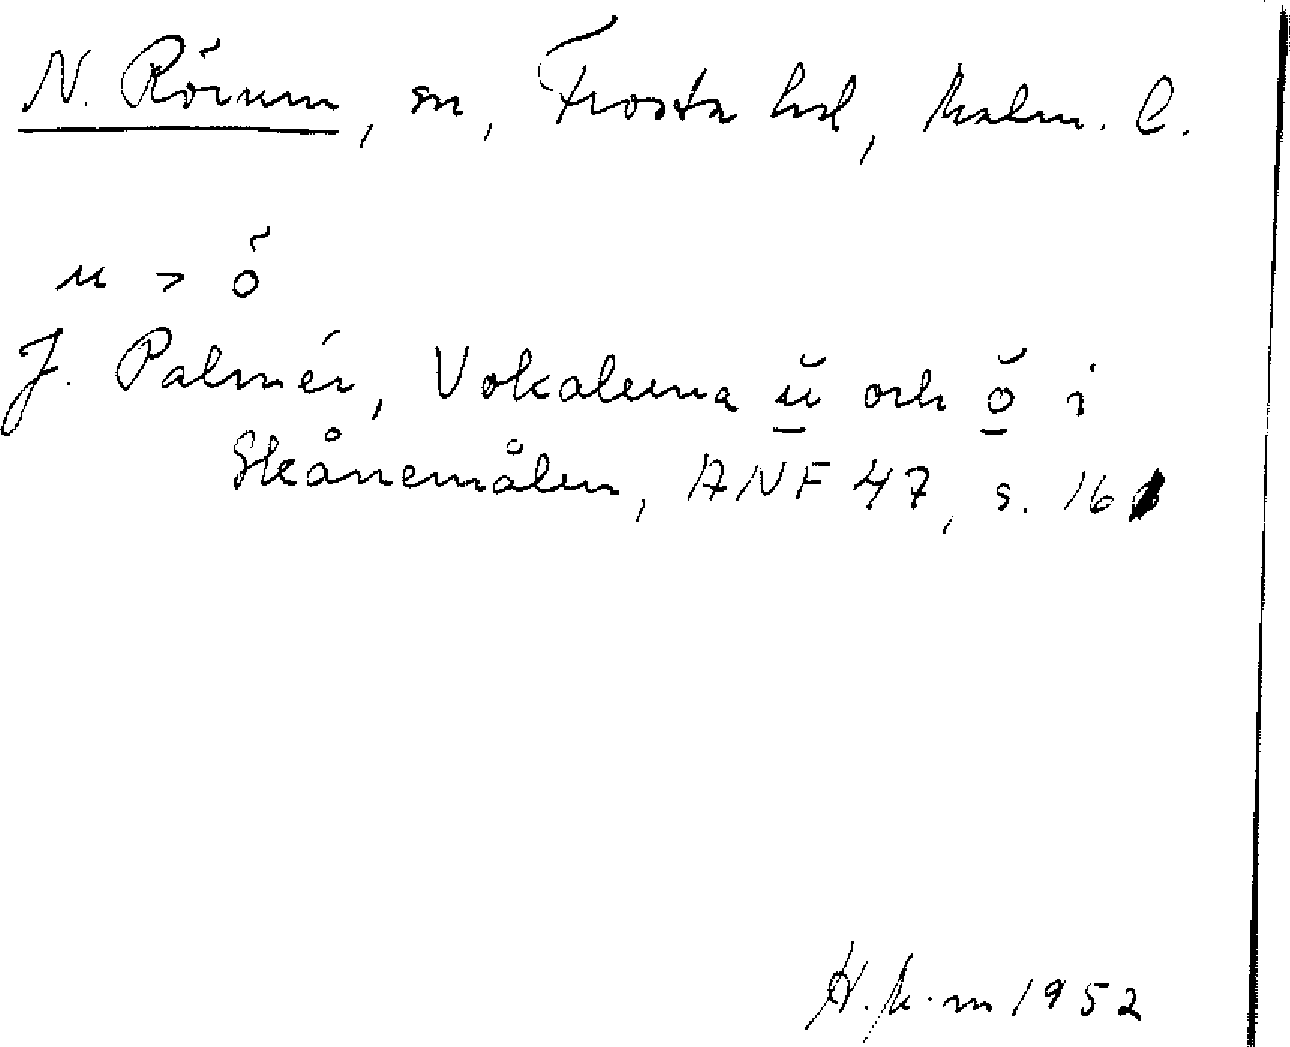 N. Rörum, sn, Frosta hd, Malm. l.
u > ö
J. Palmér, Vokalerna ŭ och ŏ i
Skånemålen, ANF 47, s. 16
1952